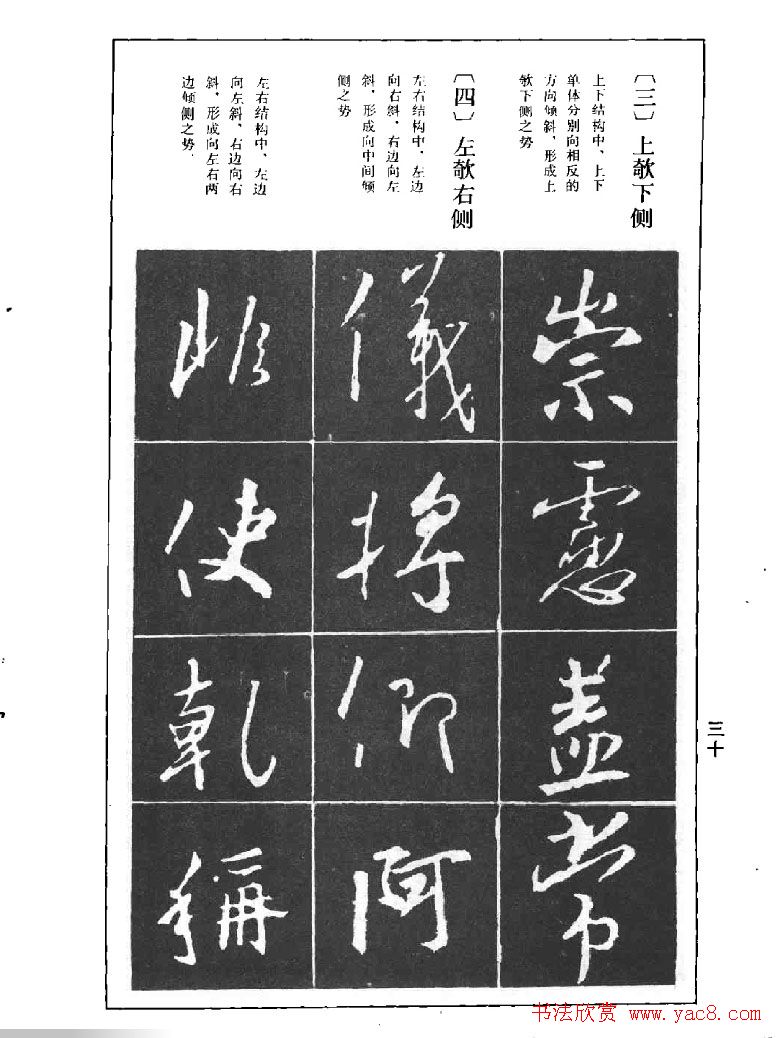 〔三〕上欹下侧
上下结构中，上下
单体分别向相反的
方向倾斜，形成上
欹下侧之势
〔四〕左欹右侧
左右结构中，左边
向右斜，右边向左
斜，形成向中间倾
侧之势
左右结构中，左边
向左斜，右边向右
斜，形成向左右两
边倾侧之势．
崇
盖
常
儀
將
仰
阿
使
乾
稱
三十
书法欣赏 www.yac8.com